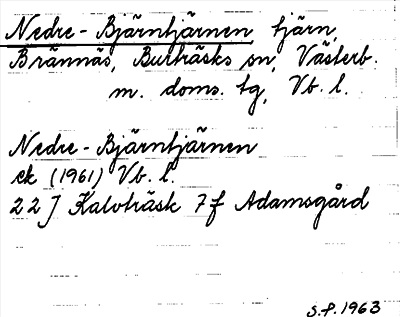 Nedre-Bjärntjärnen tjärn,
Brännäs, Burträsks sn, Västerb.
m. doms. tg, Vb. l.
Nedre-Bjärntjärnen
ek (1961) Vb. l.
22 J Kalvträsk 7f Adamsgård
S.P. 1963